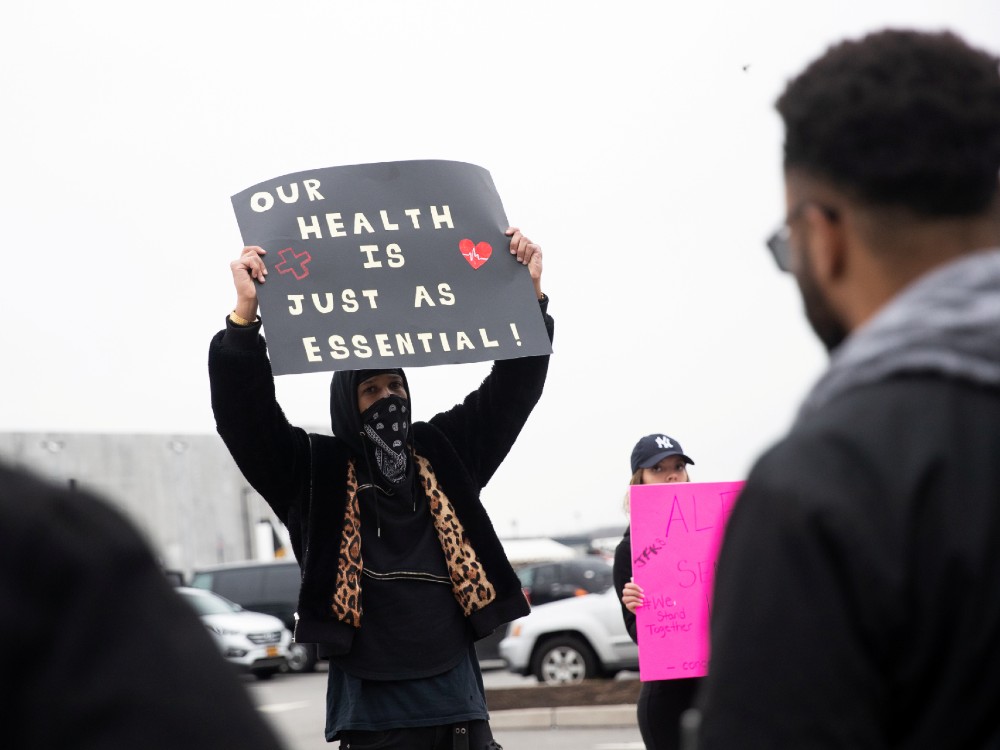 OUR
HEALTH
IS
JUST AS
ESSENTIAL!
NY
JFK8
#We
Stand
Together